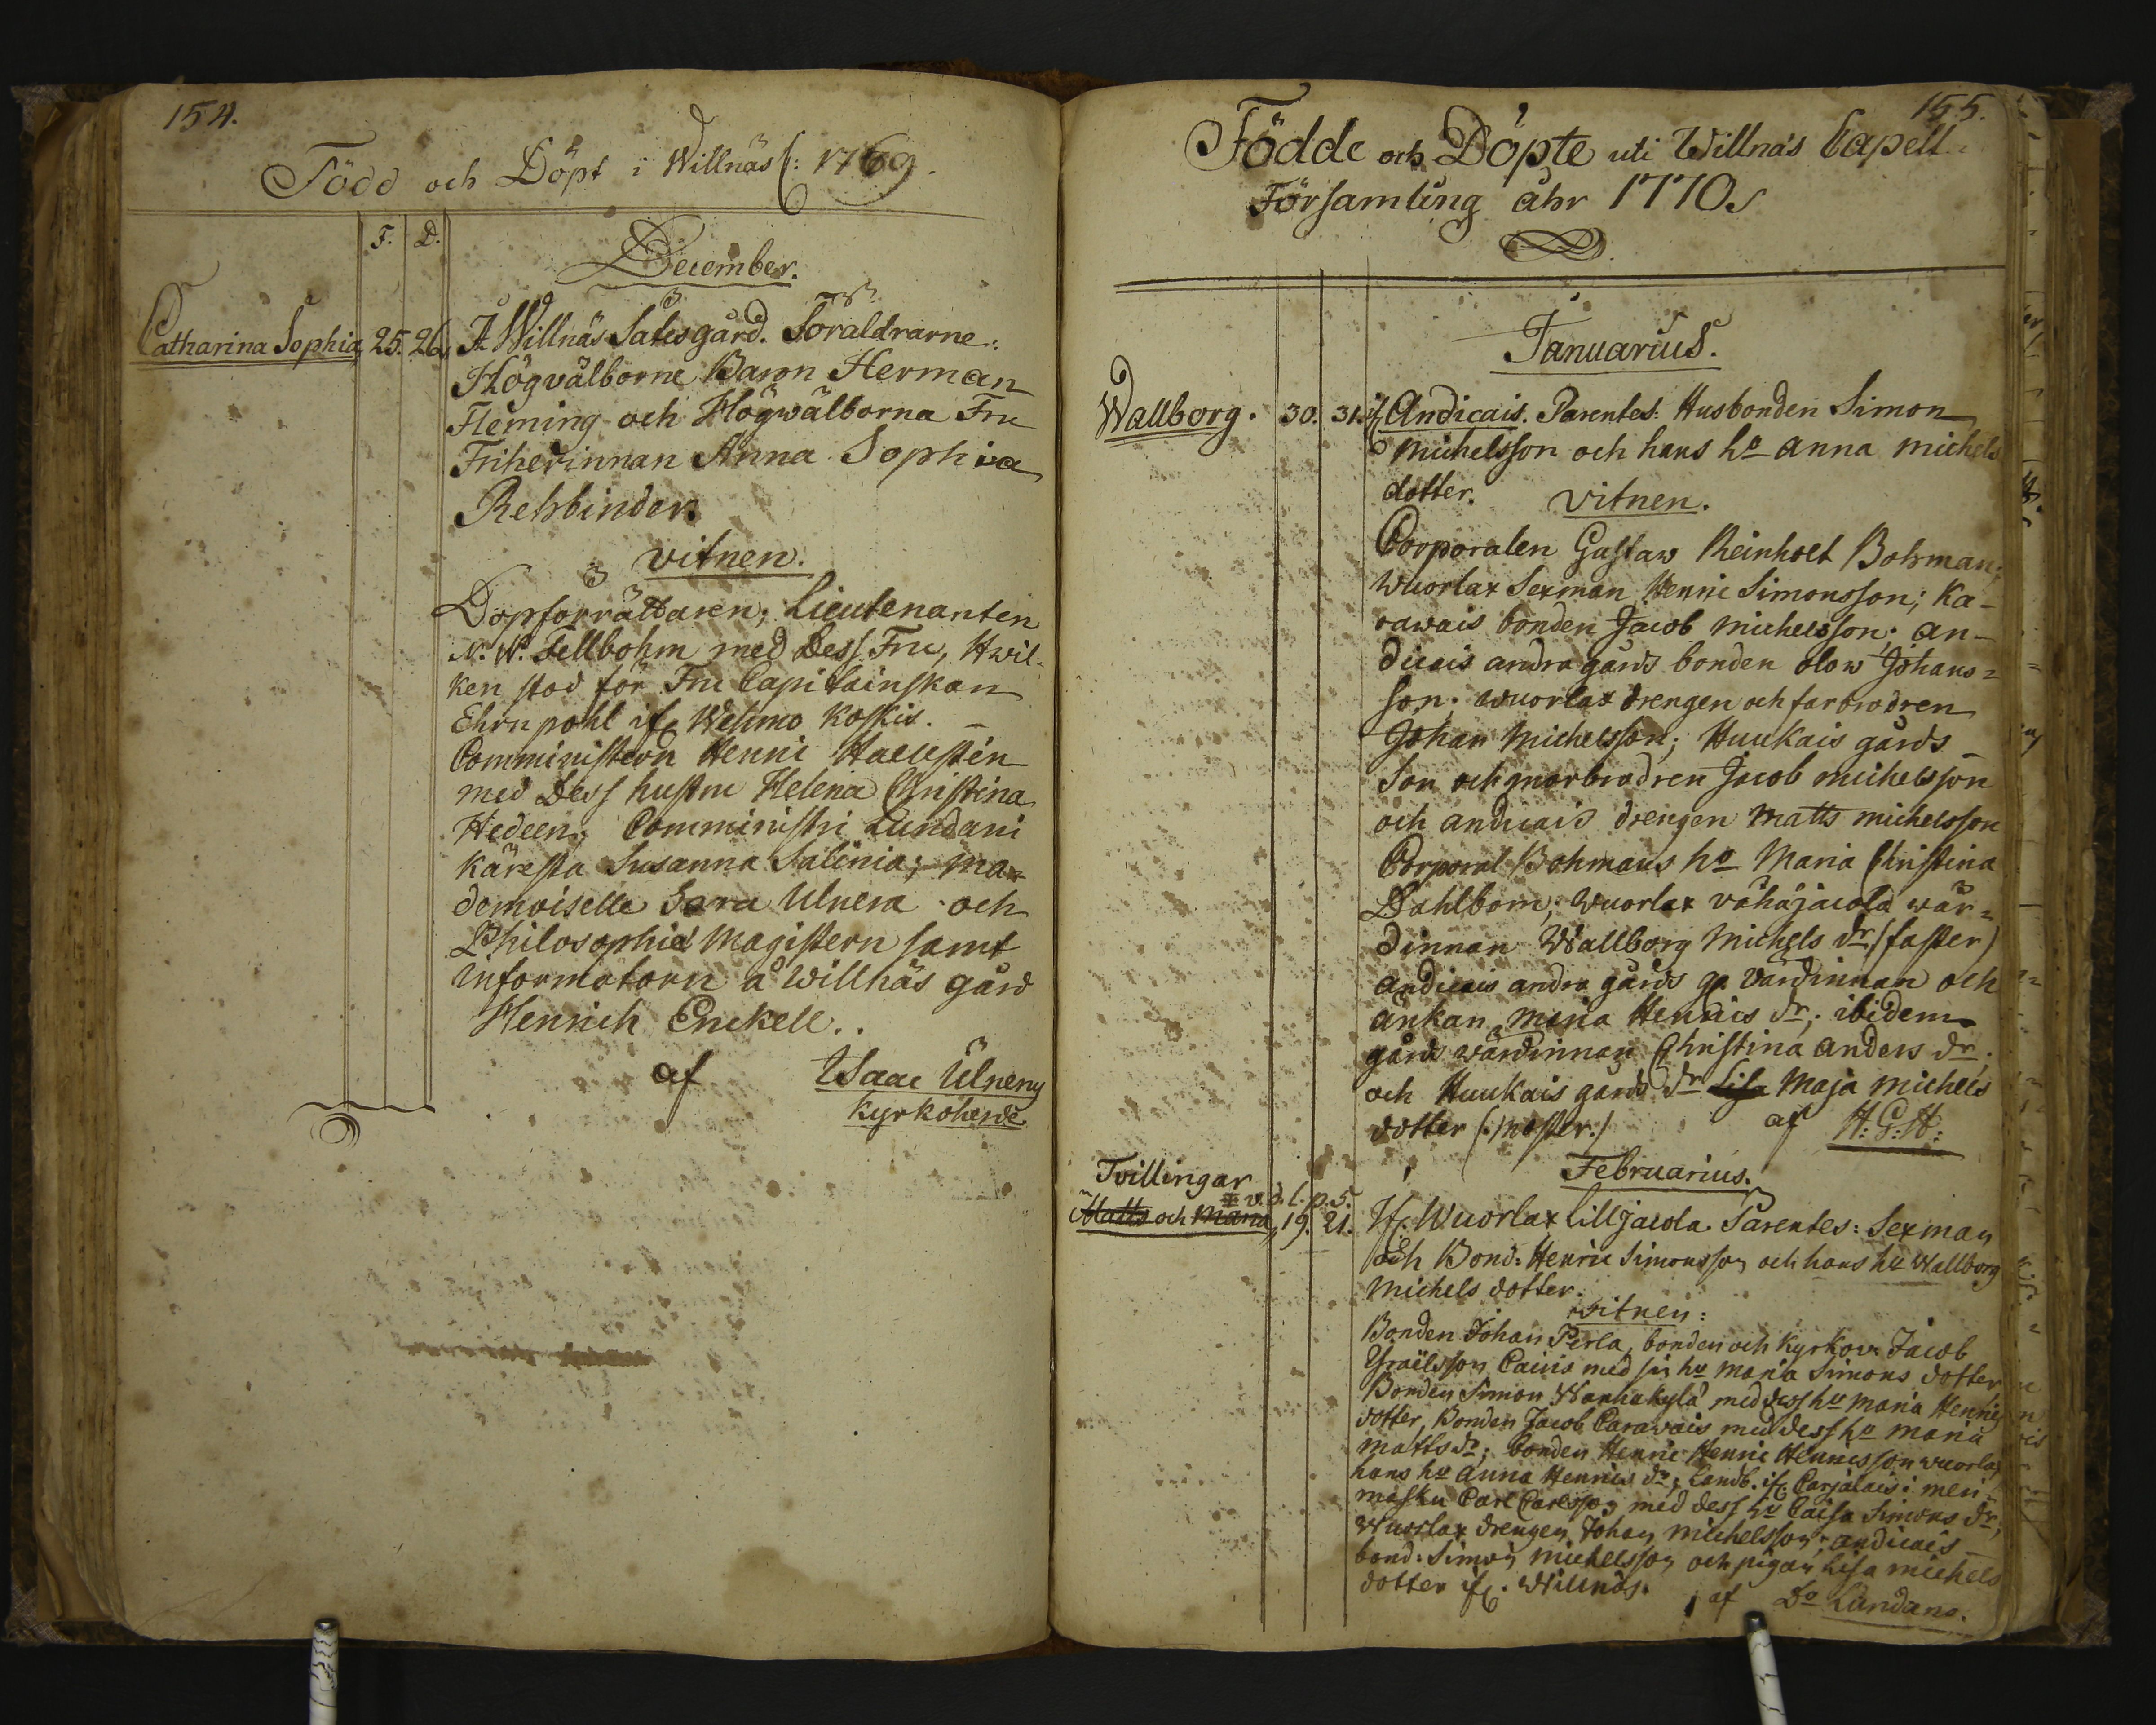 154.
Född och Döpt i Willnäs C: 1769.
F. D.
December.
Catharina Sophia, 25. 26. Å Willnäs Sätesgård. Föräldrarne:
Högvälborne Baron Herman
Fleming och Högwälborna Fru
Friherinnan Anna Sophia
Rehbinder.
vitnen.
Dopförrättaren; Lieutenanten
N. N. Fellbohm med Dess Fru, Hwil-
ken stod för Fru Capitainskan
Ehrnpohl if. Wehmo Koskis.
Comministern Henric Haeusten
med Dess hustru Helena Christina
Hedeen; Comministri Lundani
käresta Susanna Salinia; Ma-
demoiselle Sara Ulnera och
Philosophiæ Magistern samt
informatorn å willnäs gård
Henrich Enckell.
af Isaac Ulnerus
Kyrkoherde
155.
Födde och Döpte uti Willnäs Capell
Församling åhr 1770
Januarius.
Wallborg. 30. 31. if. Andicais. Parentes: Husbonden Simon
Michelsson och hans ho Anna michels
dotter. vitnen.
Corporalen Gustaw Reinholt Bohman;
Wuorlax Sexman Henric Simonsson; Ka-
rawais bonden Jacob Michelsson; an-
dicais andra gårds bonden olow Johans-
son. wuorlax drengen och farbrodren
Johan Michelsson; Huukais gårds
Son och morbrodren Jacob michelsson
och andicais drengen Matts michelsson
Corporal Bohmans ho Maria Christina
Dahlbom; Wuorlax vähäjacola wär-
dinnan Wallborg Michels dr (faster)
andicais andra gårds g. värdinnan och
änkan Maria Henrics dr; ibidem
gårds wärdinnan Christina Anders dr.
och Huukais gårds dr Lisa Maja michels
dotter (:moster:) af H: G: H:
Februarius.
Tvillingar
v. d. l. p. 5.
Matts och Maria, 19. 21. If. Wuorlax Lilljacola. Parentes: Sexman
och Bond: Henric Simonsson och hans hu Wallborg
Michels dotter.
vitnen:
Bonden Johan Perla, bonden och Kyrkov: Jacob
Israëlsson Cairis med sin hu Maria Simons dotter
Bonden Simon Wanhakylä med dess hu Maria Henrics
dotter, Bonden Jacob Carawais med dess hu maria
Matts dr; bonden Henric Henric Henricsson wuorlax
hans hu Anna Henrics dr; Landb. if. Carjalais i meri-
masku Carl Carlsson med dess hu Caisa Simons dr,
Wuorlax drengen Johan michelsson; andicais
bond: Simon Michelsson och pigan Lisa michels
dotter if. Willnäs. af Do Lundano.